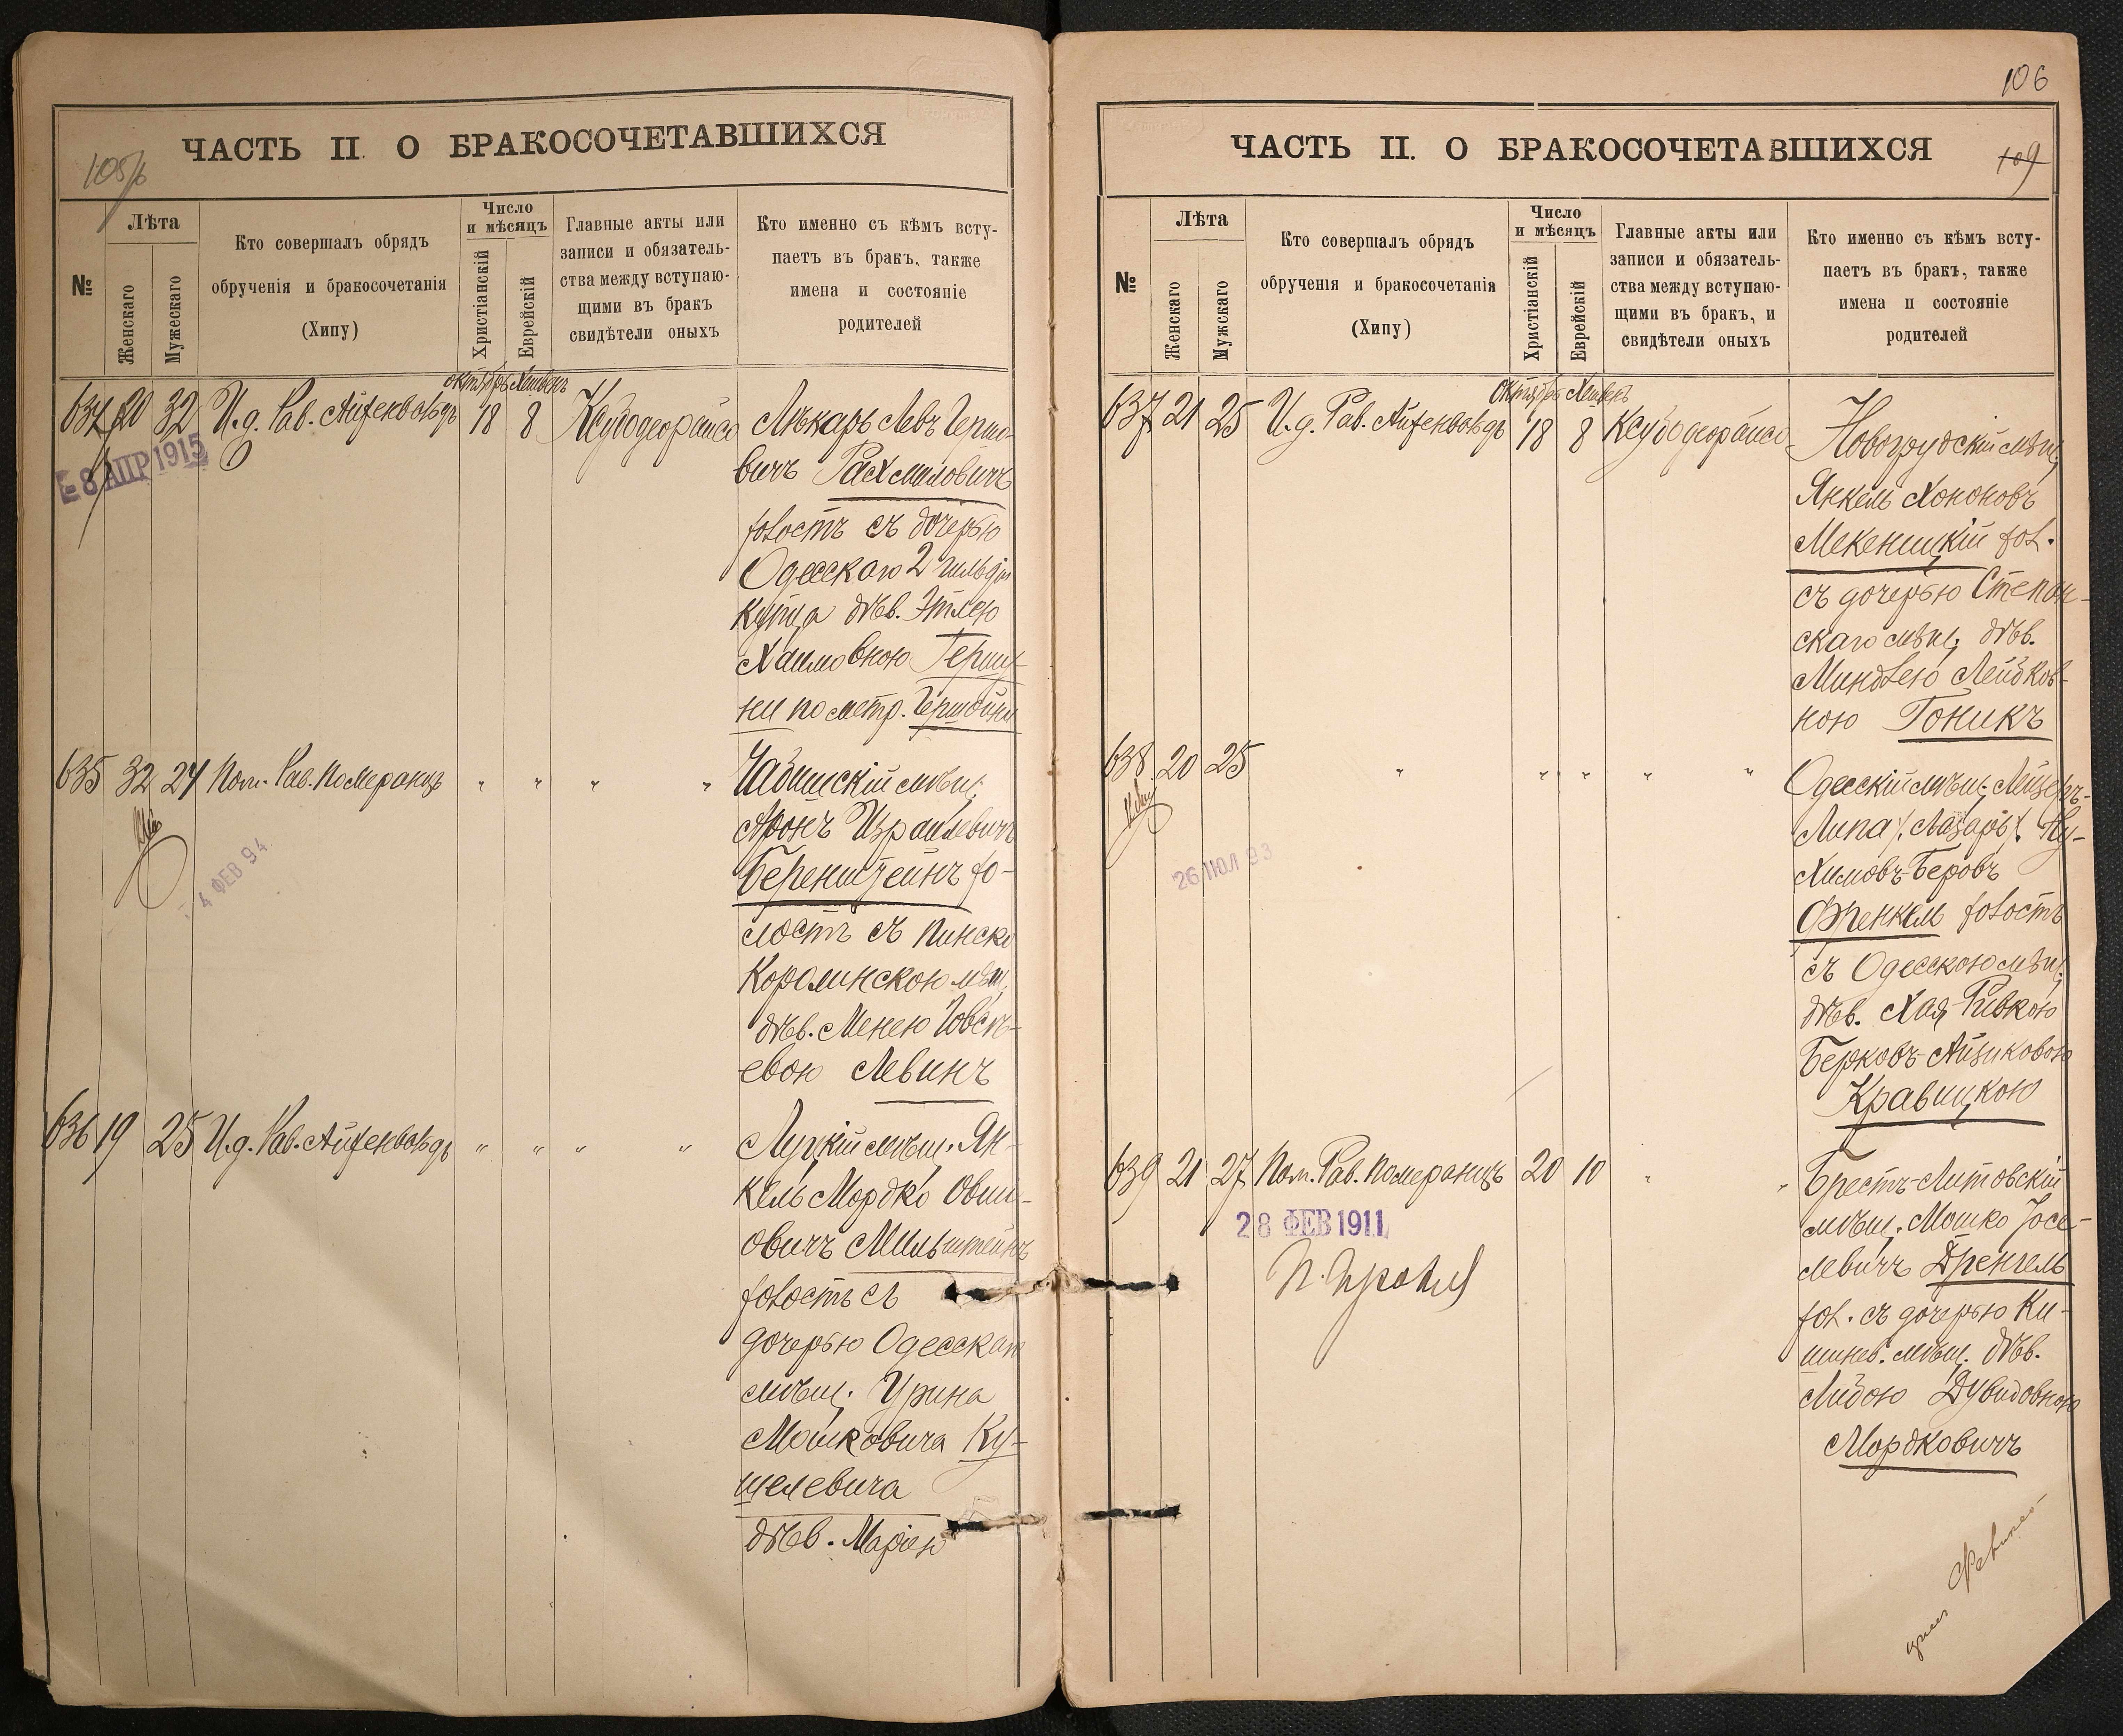 105/б
ЧАСТЬ II. О БРАКОСОЧЕТАВШИХСЯ
№
Лѣта
Женскаго
Мужескаго
Кто совершалъ обрядъ
обрученія и бракосочетанія
(Хипу)
Число
и мѣсяцъ
Христіанскій
Еврейскій
Главные акты или
записи и обязатель-
ства между вступаю-
щими въ бракъ
свидѣтели оныхъ
Кто именно съ кѣмъ всту-
паетъ въ бракъ, также
имена и состояніе
родителей
октябрь Хешвенъ
634 20 32 И.д. Рав. Айзенвольдъ 18 8
8 АПР 1915
Лѣкарь Левъ Гершо-
вичъ Рахмиловичъ
холостъ съ дочерью
Одесскаго 2 гильдіи
купца дѣв. Этлею
Хаимовною Гершу-
ни по метр. Гершойни
635 32 24 Пом. Рав. Померанцъ " " " "
4 ФЕВ 94
мѣщ.
Аронъ Израилевичъ
Беренштейнъ хо-
лостъ съ Пинско
Каролинскою мѣщ.
дѣв. Менею Іовсѣ-
евою Левинъ
636 19 25 И.д. Рав. Айзенвольдъ " " " "
Луцкій мѣщ. Ян-
кель Мордко Овши-
овичъ Мильштейнъ
холостъ съ
дочерью Одесскаго
мѣщ. Урина
Мошковича Ку-
шелевича
дѣв. Маріею
106
109
ЧАСТЬ II. О БРАКОСОЧЕТАВШИХСЯ
№
Лѣта
Женскаго
Мужскаго
Кто совершалъ обрядъ
обрученія и бракосочетанія
(Хипу)
Число
и мѣсяцъ
Христіанскій
Еврейскій
Главные акты или
записи и обязатель-
ства между вступаю-
щими въ бракъ, и
свидѣтели оныхъ
Кто именно съ кѣмъ всту-
паетъ въ бракъ, также
имена и состояніе
родителей
Октябрь Хешвенъ
637 21 25 И.д. Рав. Айзенвольдъ 18 8
Новогрудскій мѣщ.
Янкель Хононовъ
Мекеницкій хол.
съ дочерью Степан-
скаго мѣщ. дѣв.
Миндлею Лейбков-
ною Гоникъ
638 20 25 " " " " "
26 ІЮЛ 93
Одесскій мѣщ. Лейзеръ-
Липа /. Лазарь /. Ну-
химовъ-Беровъ
Френкель холостъ
съ Одесскою мѣщ.
дѣв. Хая-Ривкою
Берковъ-Айзиковою
Кравицкою
639 21 27 Пом. Рав. Померанцъ 20 10 " "
28 ФЕВ 1911
Брестъ-Литовскій
мѣщ. Мошко Іосе-
левичъ Дренгель
хол. съ дочерью Ки-
шинев. мѣщ. дѣв.
Либою Дувидовною
Мордковичъ